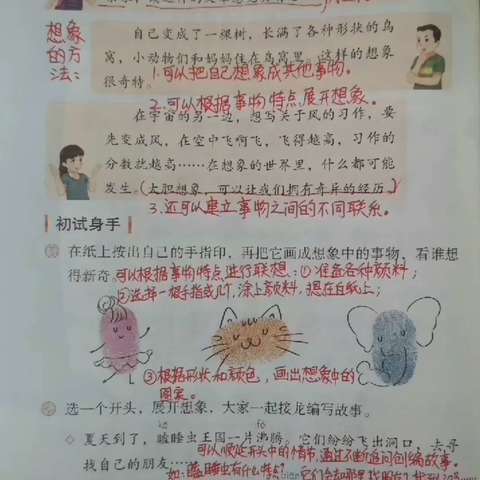 想象的方法:
自己变成了一棵树,长满了各种形状的鸟
窝,小动物们和妈妈住在鸟窝里。这样的想象
很奇特。
1.可以把自己想象成其他事物。
2.可以根据事物特点展开想象。
在宇宙的另一边,想写关于风的习作,要
先变成风,在空中飞啊飞,飞得越高,习作的
分数就越高……在想象的世界里,什么都可能
发生。(大胆想象,可以让我们拥有奇异的经历。)
3.还可以建立事物之间的不同联系。
初试身手
在纸上按出自己的手指印,再把它画成想象中的事物,看谁想
得新奇。可以根据事物特点进行联想:①准备各种颜料;
②选择一根手指或几个,涂上颜料,摁在白纸上;
③根据形状和颜色,画出想象中的
图案。
选一个开头,展开想象,大家一起接龙编写故事。
kē fèi
◇ 夏天到了,瞌睡虫王国一片沸腾。它们纷纷飞出洞口,去寻
找自己的朋友……
可以顺延开头中的情节,通过不断追问创编故事。
如:瞌睡虫有什么特点?